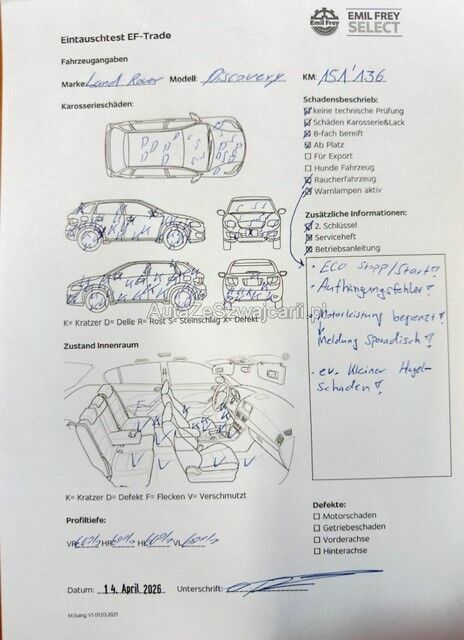 Eintauschtest EF-Trade
Emil Frey
EMIL FREY
SELECT
Fahrzeugangaben
Marke: Land Rover Modell: Discovery KM: 151'136
Karosserieschäden:
Schadensbeschrieb:
keine technische Prüfung
Schäden Karosserie&Lack
8-fach bereift
Ab Platz
Für Export
Hunde Fahrzeug
Raucherfahrzeug
Warnlampen aktiv
Zusätzliche Informationen:
2. Schlüssel
Serviceheft
Betriebsanleitung
• ECO Stopp/Start!
• Aufhängungsfehler!
• Motorleistung begrenzt!
Meldung sporadisch!
• ev. kleiner Hagel-
schaden!
K= Kratzer D= Delle R= Rost S= Steinschlag X= Defekt
AutaZeSzwajcarii.pl
Zustand Innenraum
K= Kratzer D= Defekt F= Flecken V= Verschmutzt
Profiltiefe:
VR 60% HR 60% HL 60% VL 60%
Defekte:
Motorschaden
Getriebeschaden
Vorderachse
Hinterachse
Datum: 14. April 2026 Unterschrift:
M.Suing V1 01.03.2021